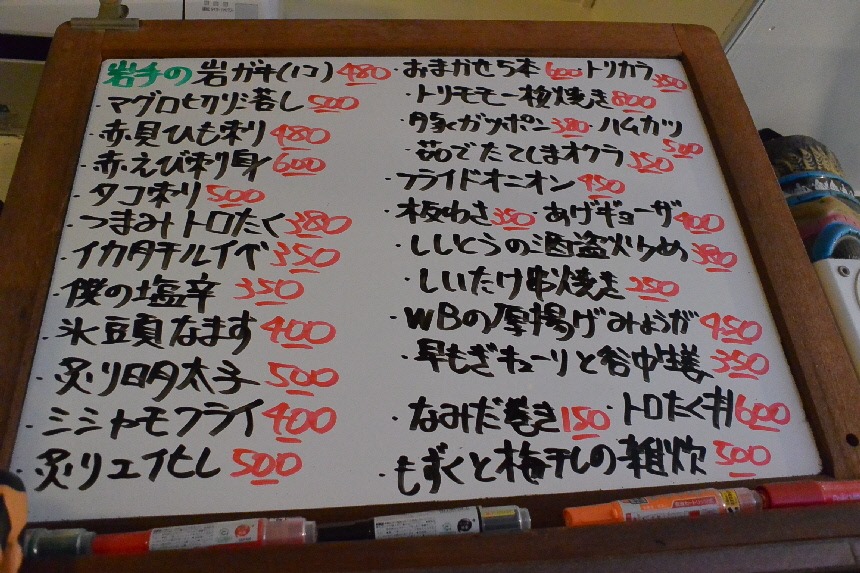 岩手の岩ガキ(1コ) 480
・マグロ切り落し 500
・赤貝ひも刺り 480
・赤えび刺り身 600
・タコ刺り 500
・つまみトロたく 380
・イカタチルイベ 350
・僕の塩辛 350
・氷頭なます 400
・炙り明太子 500
・シシャモフライ 400
・炙りエイヒレ 500
・おまかせ5本 600 トリカラ 350
・トリモモ一枚焼き 800
・豚ガツポン 380 ・ハムカツ 500
・茹でたてしまオクラ 350
・フライドオニオン 450
・板わさ 350 ・あげギョーザ 400
・ししとうの酒盗炒め 380
・しいたけ串焼き 250
・WBの厚揚げみょうが 450
・早もぎキューリと谷中生姜 350
・なみだ巻き 150 ・トロたく丼 600
・もずくと梅干しの雑炊 500